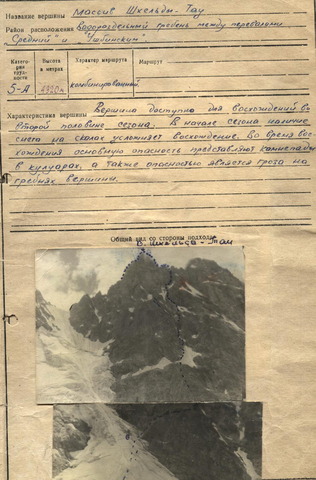 Название вершины Массив Шхельды-Тау
Район расположения Водораздельный гребень между перевалами
Средний" и "Ушбинский"
Катего-рия труд-ности
Высота в метрах
Характер маршрута
Маршрут
5-А
4320м
комбинированный
Характеристика вершины Вершина доступна для восхождений во
второй половине сезона. В начале сезона наличие
снега на скалах усложняет восхождение. Во время вос-
хождения основную опасность представляют камнепады
в кулуарах, а также опасностью является гроза на
гребнях вершины.
Общий вид со стороны подхода
В. Шхельда-Тау